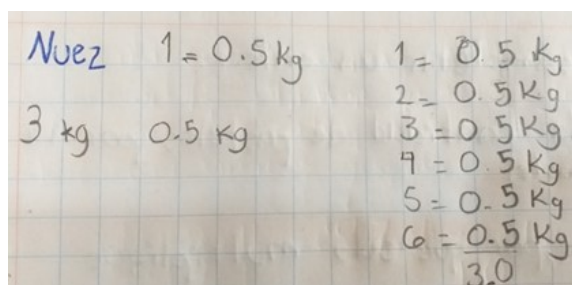 Nuez 1 = 0.5 kg
3 kg 0.5 kg
1 = 0.5 Kg
2 = 0.5 Kg
3 = 0.5 Kg
4 = 0.5 Kg
5 = 0.5 Kg
6 = 0.5 Kg
3.0